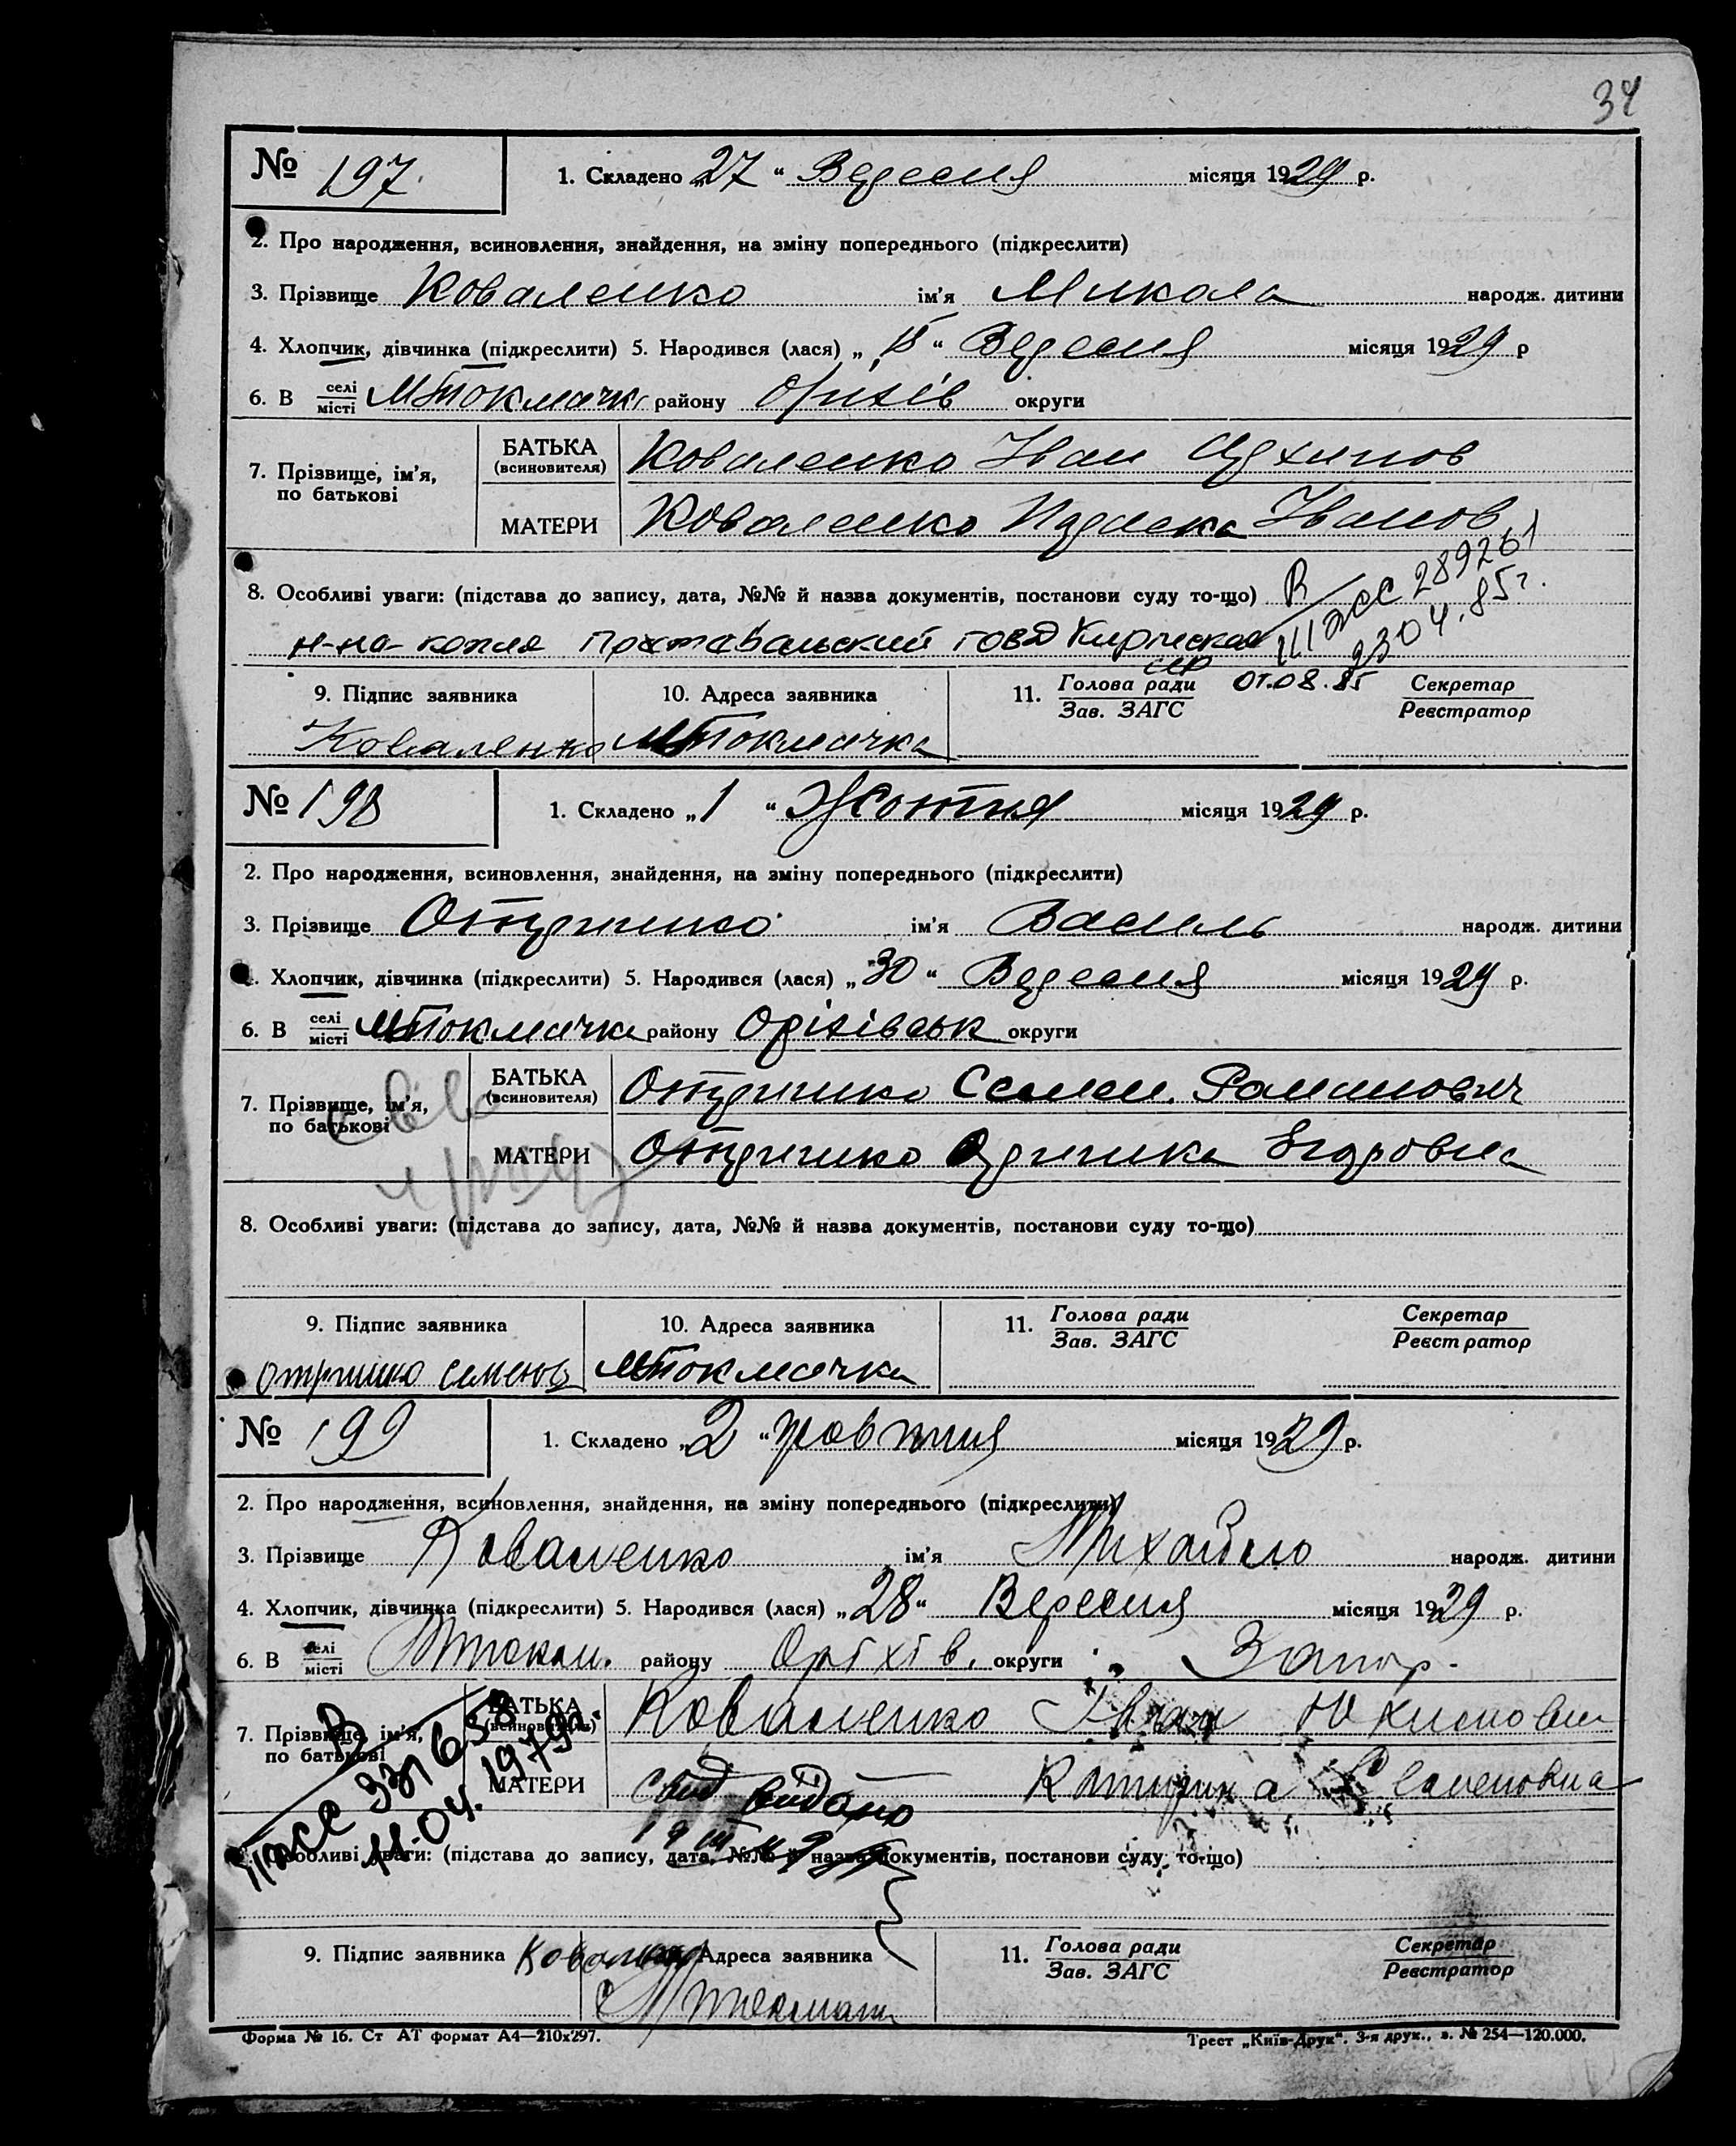 34
№ 197. 1. Складено „27“ Вересня місяця 1929 р.
2. Про народження, всиновлення, знайдення, на зміну попереднього (підкреслити)
3. Прізвище Коваленко ім'я Микола народж. дитини
4. Хлопчик, дівчинка (підкреслити) 5. Народився (лася) „15“ Вересня місяця 1929 р
6. В селі місті МТокмачка району Оріхів округи
7. Прізвище, ім'я, по батькові
БАТЬКА (всиновителя) Коваленко Іван
МАТЕРИ Коваленко Іванов
8. Особливі уваги: (підстава до запису, дата, №№ й назва документів, постанови суду то-що)
н-на копия
В III ЖС 289261
23 04.85г.
01.08.85
9. Підпис заявника 10. Адреса заявника 11. Голова ради Зав. ЗАГС Секретар Реєстратор
Коваленко МТокмачка
№ 198 1. Складено „1“ Жовтня місяця 1929 р.
2. Про народження, всиновлення, знайдення, на зміну попереднього (підкреслити)
3. Прізвище Отришко ім'я Василь народж. дитини
4. Хлопчик, дівчинка (підкреслити) 5. Народився (лася) „30“ Вересня місяця 1929 р.
6. В селі місті МТокмачка району Оріхівськ округи
7. Прізвище, ім'я, по батькові
БАТЬКА (всиновителя) Отришко Семен
МАТЕРИ Отришко
8. Особливі уваги: (підстава до запису, дата, №№ й назва документів, постанови суду то-що)
9. Підпис заявника 10. Адреса заявника 11. Голова ради Зав. ЗАГС Секретар Реєстратор
Отришко МТокмачка
№ 199 1. Складено „2“ жовтня місяця 1929 р.
2. Про народження, всиновлення, знайдення, на зміну попереднього (підкреслити)
3. Прізвище Коваленко ім'я Михайло народж. дитини
4. Хлопчик, дівчинка (підкреслити) 5. Народився (лася) „28“ Вересня місяця 1929 р.
6. В селі місті МТокм. району Оріхів. округи Запор.
7. Прізвище, ім'я, по батькові
БАТЬКА (всиновителя) Коваленко Іван Юхимович
МАТЕРИ Катерина Семеновна
свид видано
11.04.1979г.
8. Особливі уваги: (підстава до запису, дата, №№ й назва документів, постанови суду то-що)
9. Підпис заявника 10. Адреса заявника 11. Голова ради Зав. ЗАГС Секретар Реєстратор
Форма № 16. Ст АТ формат А4—210х297. Трест „Київ-Друк“. 3-я друк., з. № 254—120.000.